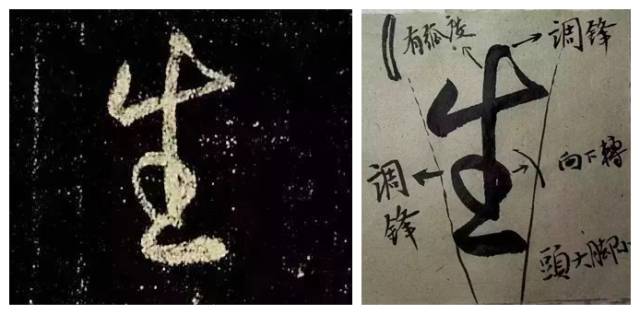 生
有弧度
调锋
生
向下转
调锋
頭大脚小